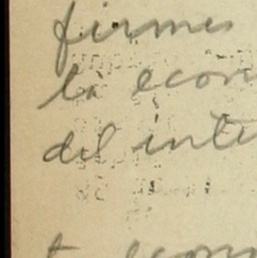 firmes
la econ
del inte